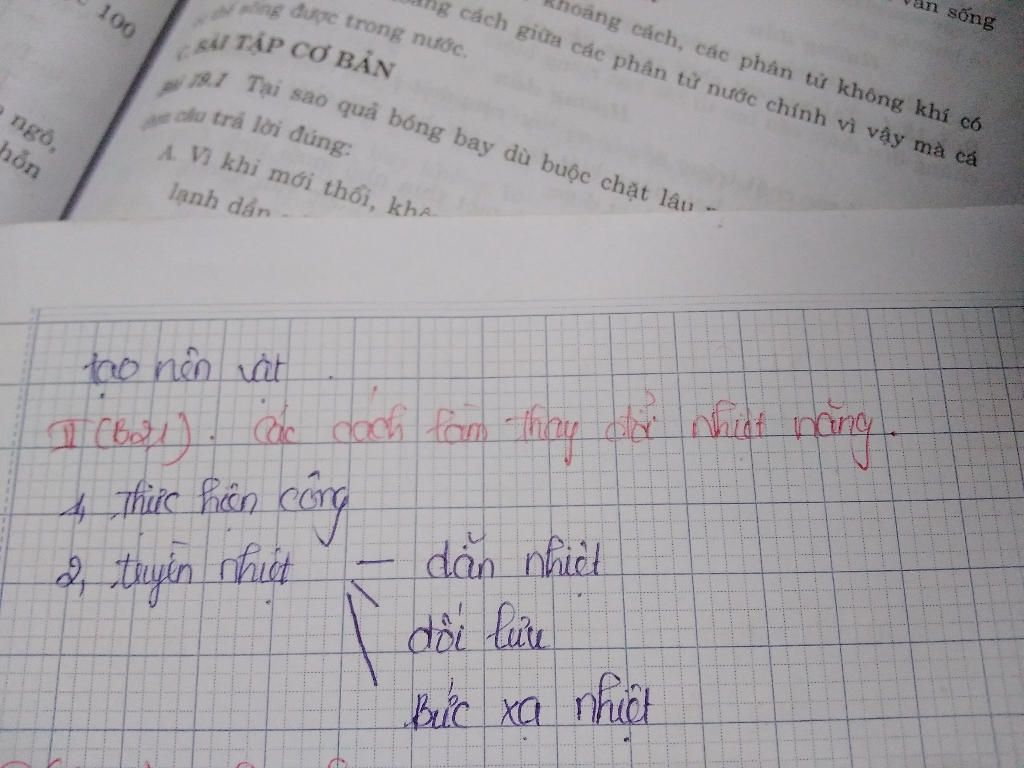 100
ngô,
hỗn
văn sống
khoảng cách, các phân tử không khí có
cách giữa các phân tử nước chính vì vậy mà cá
sống được trong nước.
C. BÀI TẬP CƠ BẢN
19.1 Tại sao quả bóng bay dù buộc chặt lâu
câu trả lời đúng:
A. Vì khi mới thổi,
lạnh dần
tạo nên vật.
II (Bài). Các cách làm thay đổi nhiệt năng.
1, Thực hiện công
2, truyền nhiệt — dẫn nhiệt
đối lưu
Bức xạ nhiệt